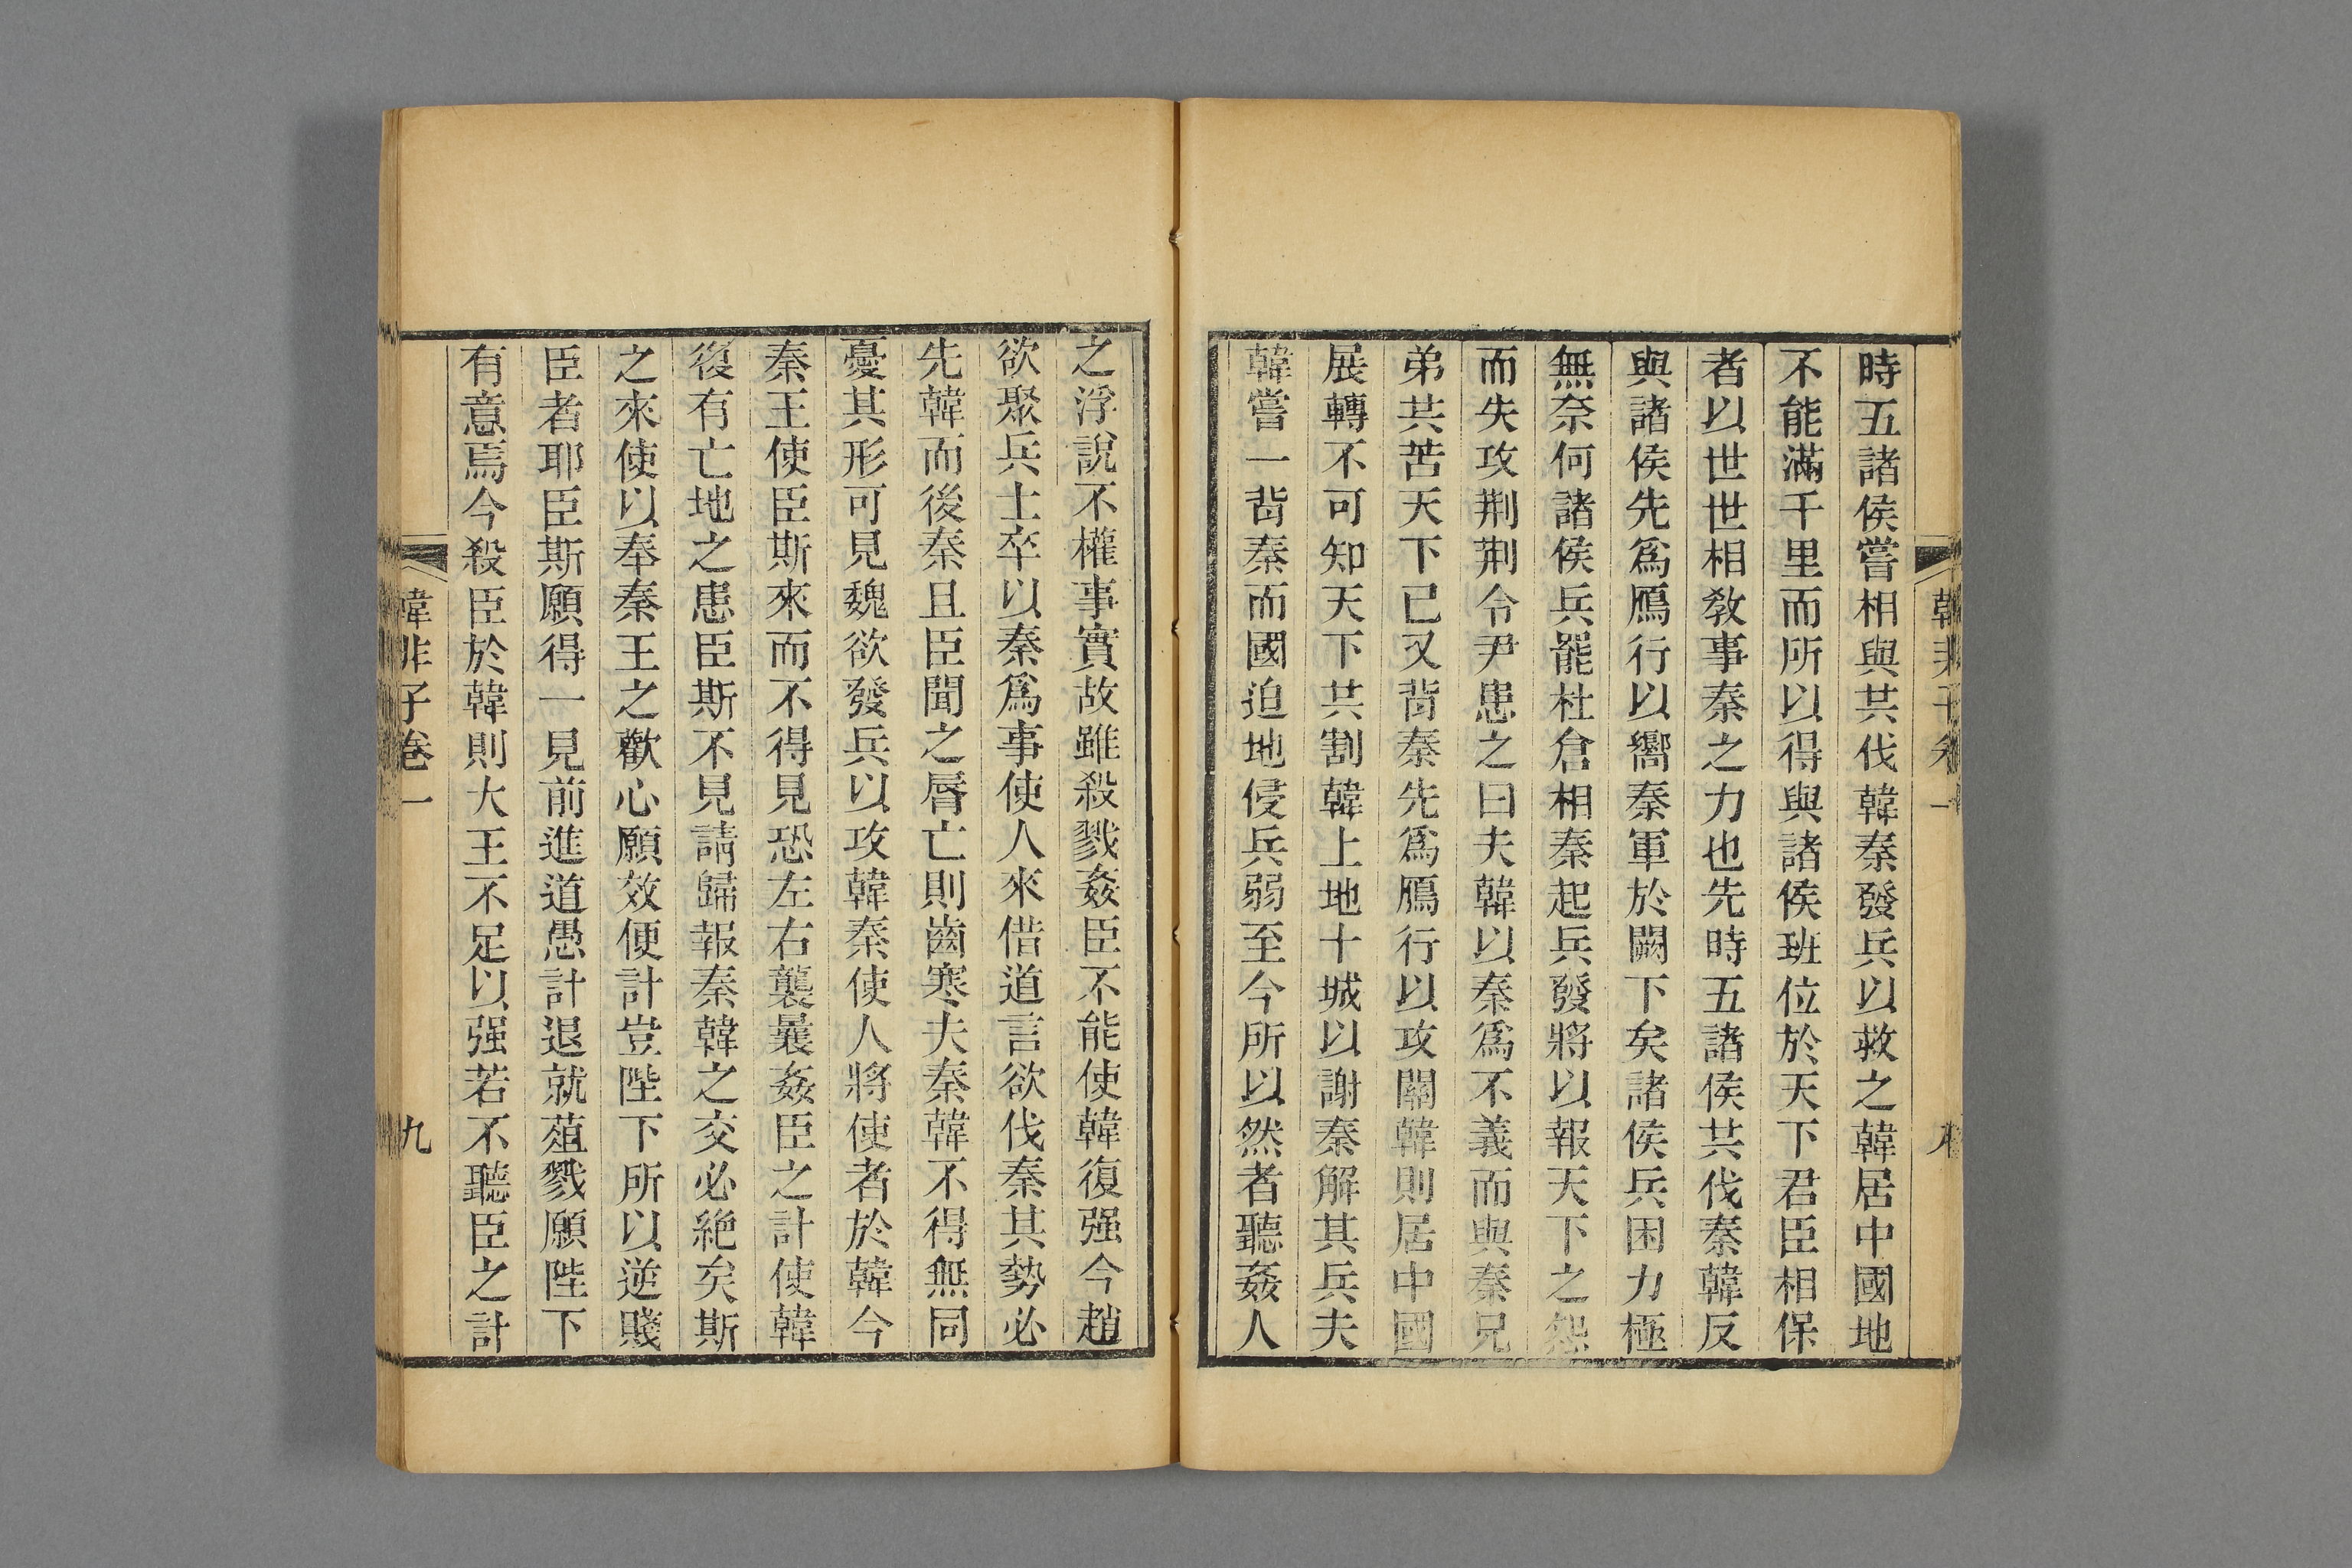 時五諸侯嘗相與共伐韓秦發兵以救之韓居中國地
不能滿千里而所以得與諸侯班位於天下君臣相保
者以世世相敎事秦之力也先時五諸侯共伐秦韓反
與諸侯先爲鴈行以嚮秦軍於闕下矣諸侯兵困力極
無奈何諸侯兵罷杜倉相秦起兵發將以報天下之怨
而失攻荆荆令尹患之曰夫韓以秦爲不義而與秦兄
弟共苦天下已又背秦先爲鴈行以攻關韓則居中國
展轉不可知天下共割韓上地十城以謝秦解其兵夫
韓嘗一背秦而國迫地侵兵弱至今所以然者聽姦人
韓非子卷一
之浮說不權事實故雖殺戮姦臣不能使韓復强今趙
欲聚兵士卒以秦爲事使人來借道言欲伐秦其勢必
先韓而後秦且臣聞之脣亡則齒寒夫秦韓不得無同
憂其形可見魏欲發兵以攻韓秦使人將使者於韓今
秦王使臣斯來而不得見恐左右襲曩姦臣之計使韓
復有亡地之患臣斯不見請歸報秦韓之交必絕矣斯
之來使以奉秦王之歡心願效便計豈陛下所以逆賤
臣者耶臣斯願得一見前進道愚計退就葅戮願陛下
有意焉今殺臣於韓則大王不足以强若不聽臣之計
韓非子卷一
九